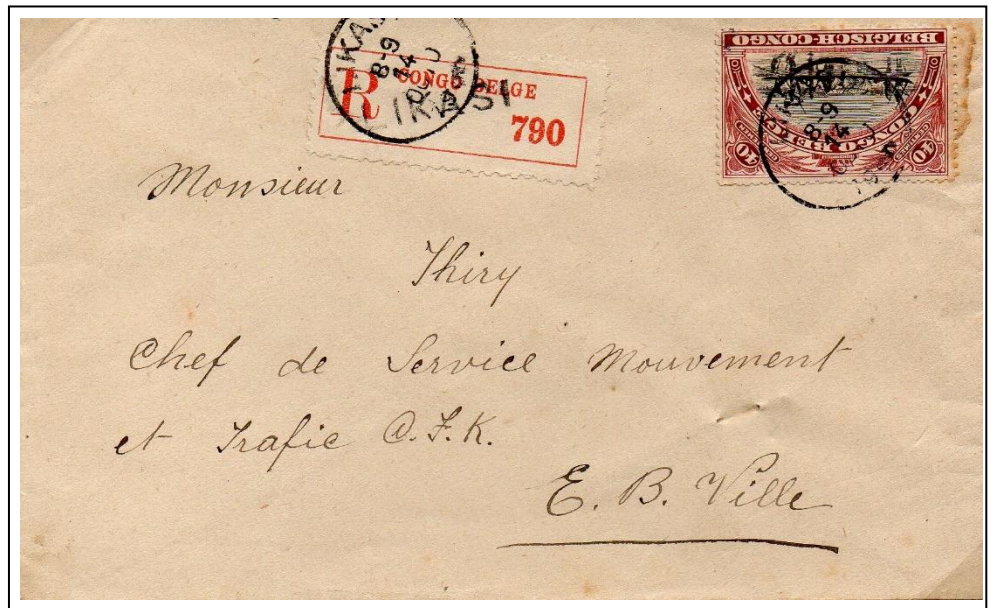 LIKASI
8-9
14
R CONGO BELGE
LIKASI
790
BELGISCH-CONGO
CONGO BELGE
40 40
8-9
14
Monsieur
Thiry
Chef de Service Mouvement
et Trafic C.F.K.
E. B. Ville